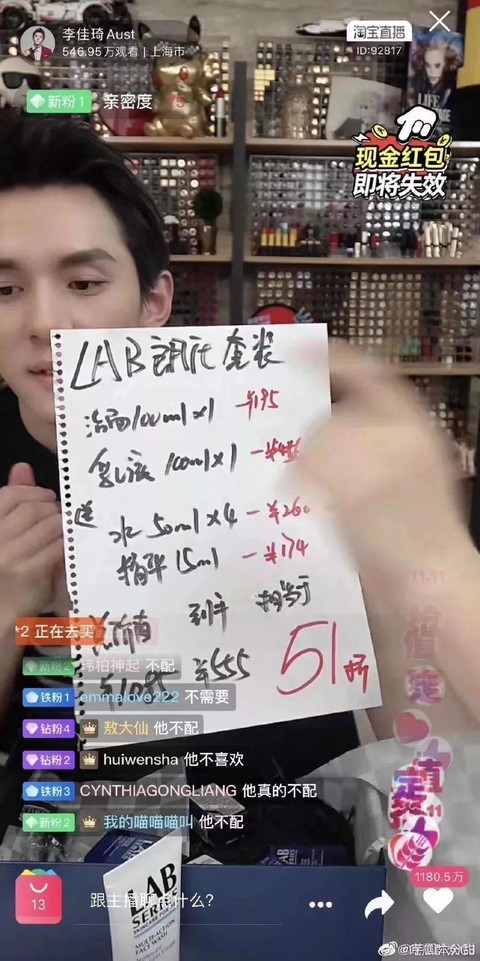 李佳琦Aust
546.95万观看 | 上海市
淘宝直播
ID:92817
新粉1 亲密度 75
现金红包
即将失效
LAB 朗仕 套装
洁面100ml×1 -¥195
乳液 100ml×1
送 水 50ml×4
精华 15ml -¥174
到手 相当于
¥555 51折
*2 正在去买
新粉2 玮柏神起 不配
铁粉1 emmalove222 不需要
钻粉4 敖大仙 他不配
钻粉2 huiwensha 他不喜欢
铁粉3 CYNTHIAGONGLIANG 他真的不配
新粉2 我的喵喵喵叫 他不配
LAB
SERIES
SKINCARE FOR MEN
MULTI-ACTION
FACE WASH
13
跟主播聊点什么?
1180.5万